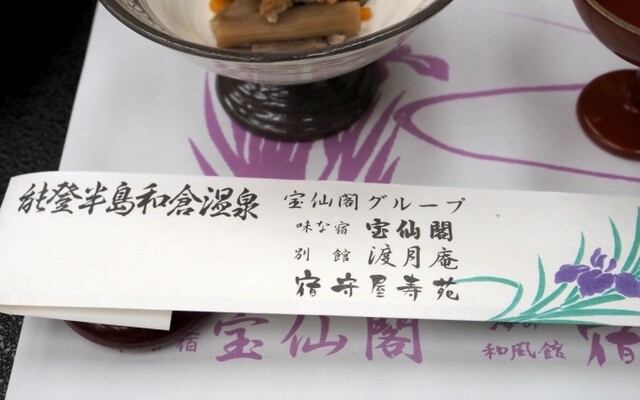 能登半島和倉温泉
宝仙閣グループ
味な宿 宝仙閣
別館 渡月庵
宿守屋寿苑
宿 宝仙閣
和風館 宿